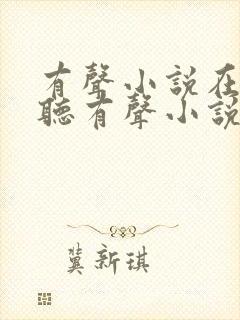 有聲小說在
聽有聲小說
冀新琪